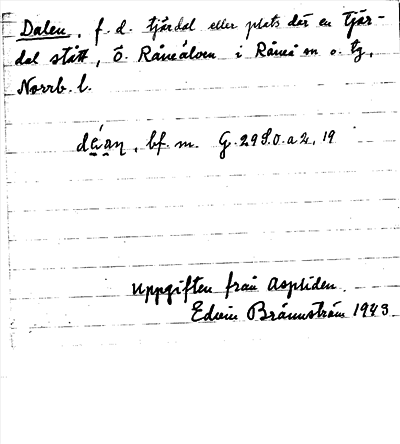 Dalen, f. d. tjärdal eller plats där en tjär-
dal stått, Ö. Råneälven i Råneå sn o. tg,
Norrb. l.
bf. m. G. 29 S.O. a 2, 19
Uppgiften från Aspliden.
Edvin Brännström 1943